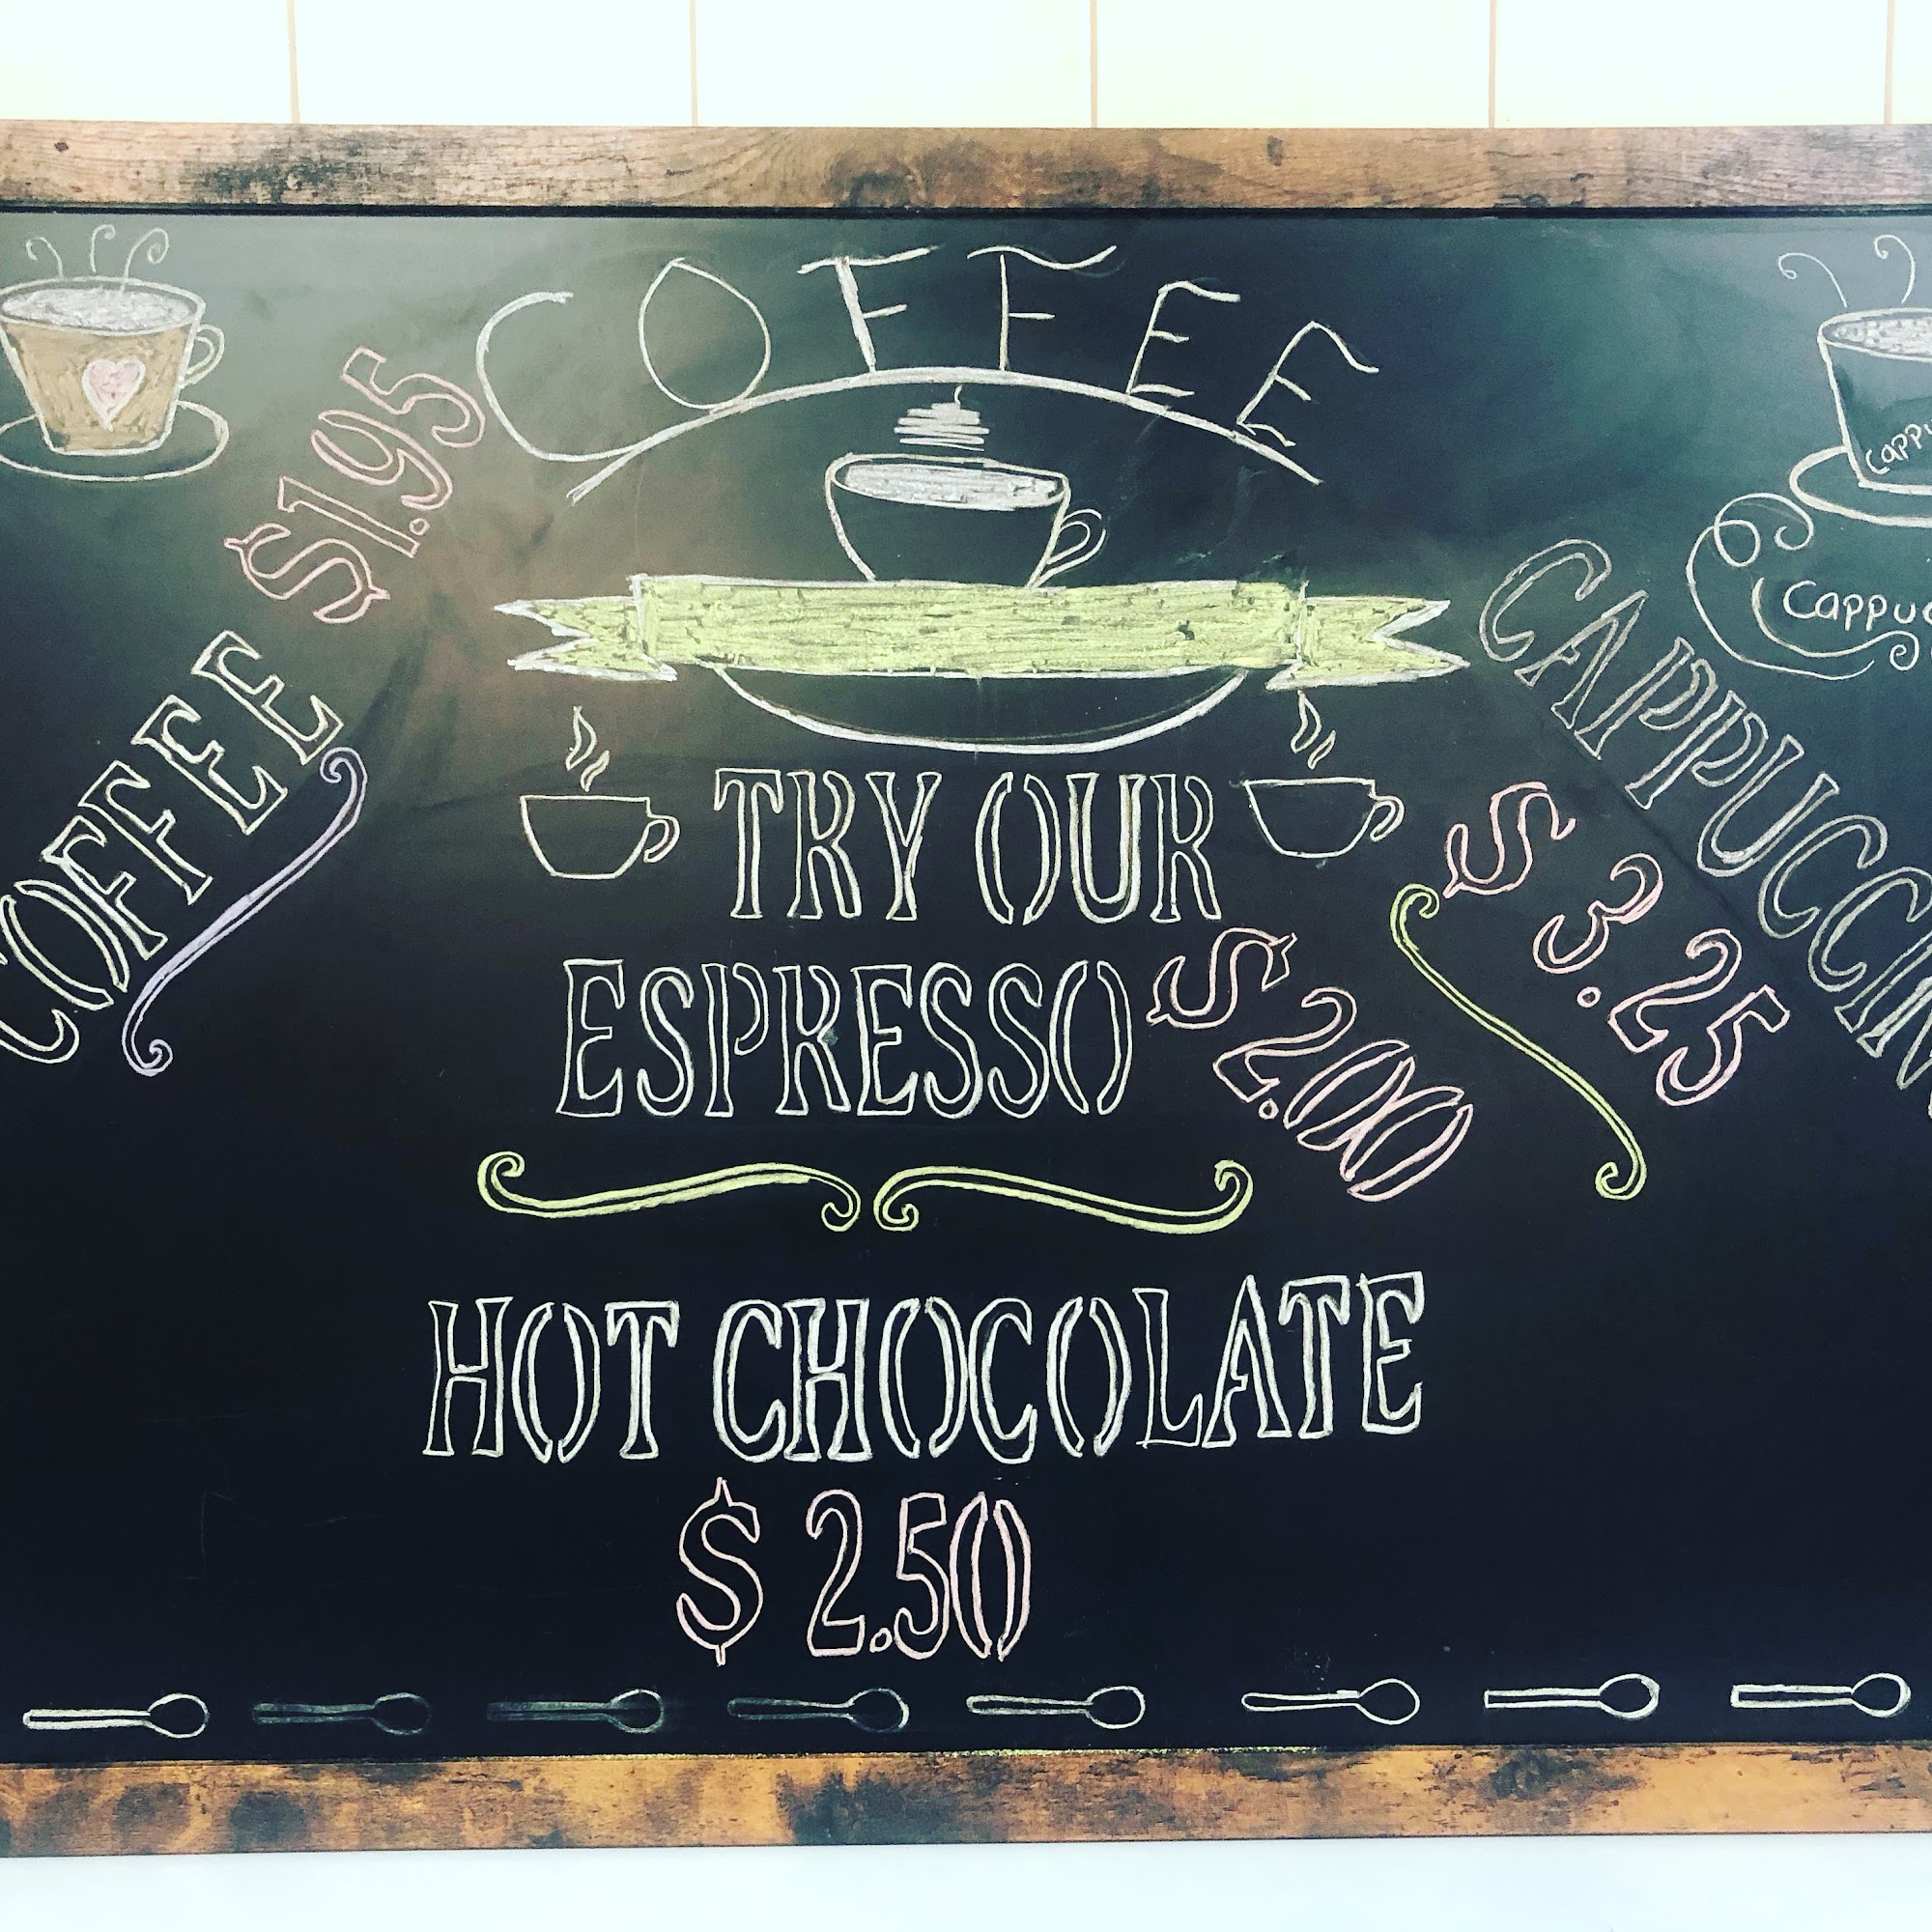 COFFEE
$1.95
COFFEE
TRY OUR
ESPRESSO
$2.00
CAPPUCCIN
$3.25
Cappu
Cappuc
HOT CHOCOLATE
$2.50